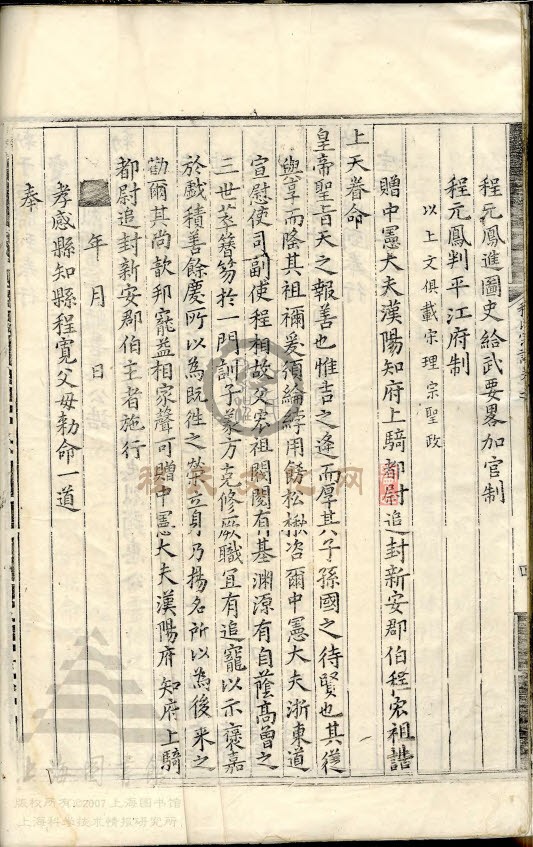 程元鳳進圖史給武要畧加官制
程元鳳判平江府制
以上文俱載宗理宗聖政
贈中憲大夫漢陽知府上騎都尉追封新安郡伯程宏祖誥
上天眷命
皇帝聖旨天之報善也惟吉之逢而厚其子孫國之待賢也其從
與享而隆其祖禰爰須綸綍用餙松楸咨爾中憲大夫浙東道
宣慰使司副使程相故父宏祖閥閱有基淵源有自蔭高曾之
三世莖簪笏於一門訓子義方克修厥職宜有追寵以示褒嘉
於戲積善餘慶所以為既徃之榮立身乃揚名所以為後来之
勸爾其尚歆邦寵益相家聲可贈中憲大夫漢陽府知府上騎
都尉追封新安郡伯主者施行
年月日
孝感縣知縣程寛父母勑命一道
奉
四
程氏念祖网
上海圖書館
版权所有©2007上海图书馆
上海科学技术情报研究所